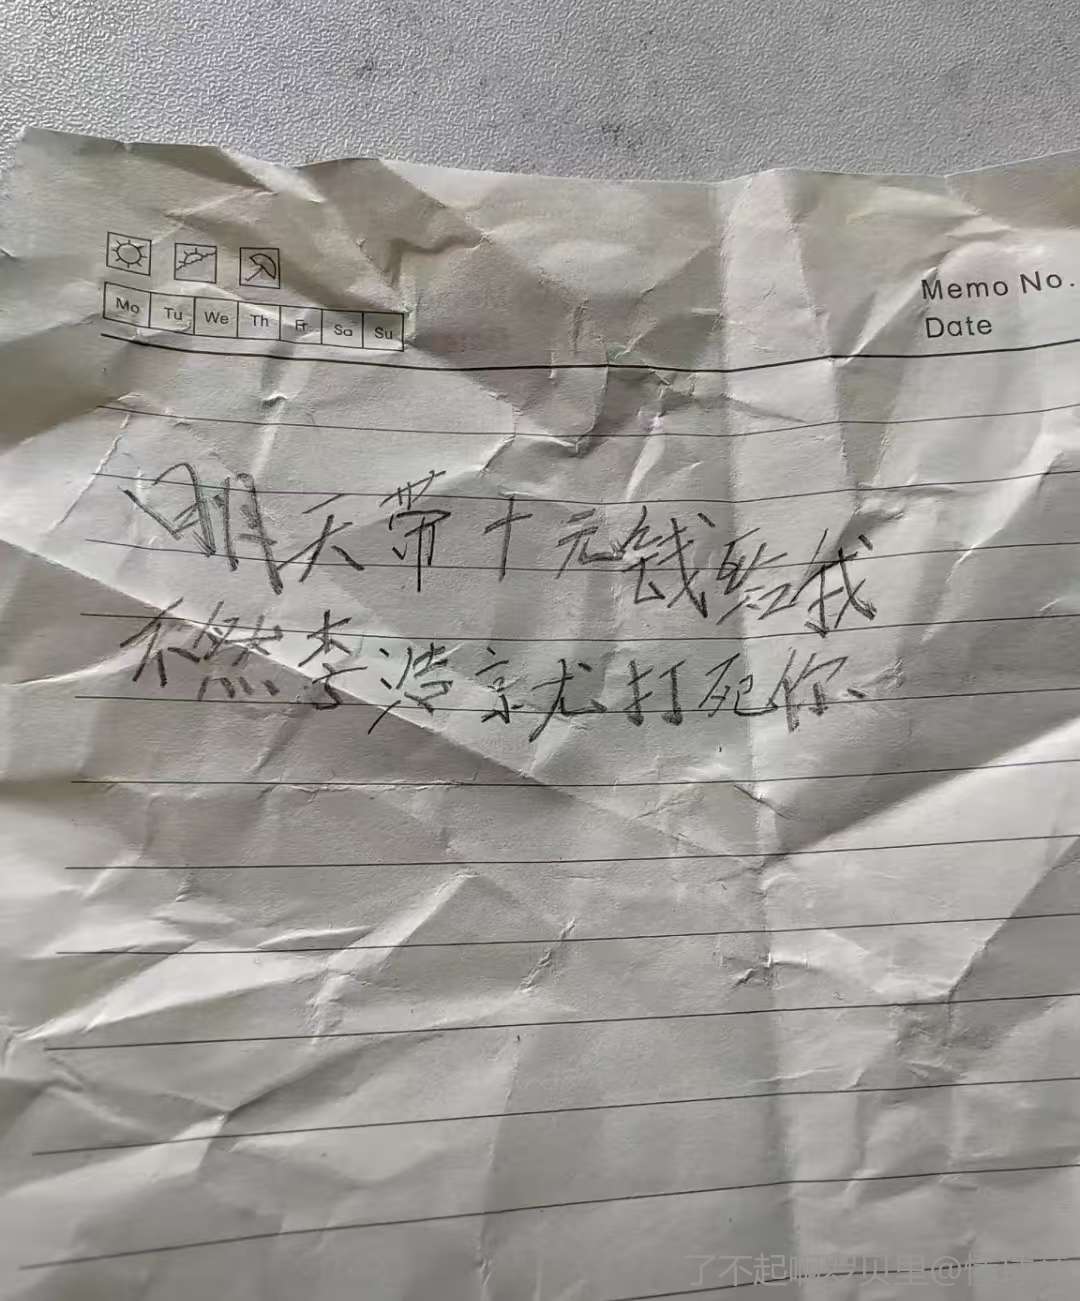 Mo Tu We Th Fr Sa Su
Memo No.
Date
明天带十元钱给我
不然李浩京尤打死你、
了不起